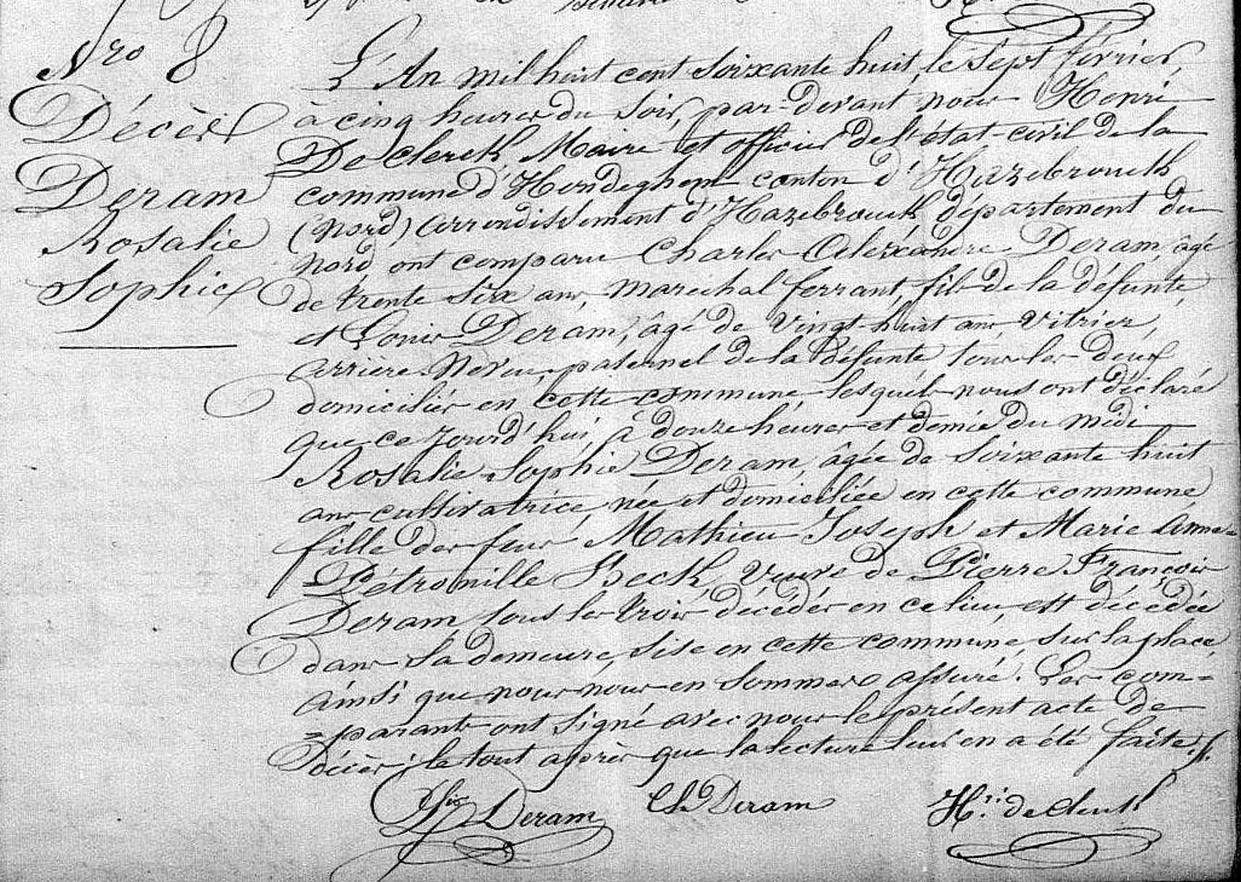 Nro 8
Décès
Deram
Rosalie
Sophie
L'An mil huit cent soixante huit, le sept février,
à cinq heures du soir, par-devant nous Henri
De Clerck, Maire et officier de l'état-civil de la
commune d'Hondeghem canton d'Hazebrouck
(Nord) arrondissement d'Hazebrouck département du
Nord, ont comparu Charles Alexandre Deram, âgé
de trente six ans, maréchal ferrant, fils de la défunte,
et Louis Deram, âgé de vingt-huit ans vitrier,
arrière-Neveu, paternel de la défunte, tous les deux
domiciliés en cette commune lesquels nous ont déclaré
que ce jourd'hui, à douze heures et demie du midi
Rosalie Sophie Deram, âgée de soixante huit
ans cultivatrice née et domiciliée en cette commune
fille des feus Mathieu Joseph et Marie Anne
Pétronille Beck, veuve de Pierre François
Deram tous les trois décédés en ce lieu, est décédée
dans sa demeure, sise en cette commune, sur la place
ainsi que nous nous en sommes assuré. Les com=
=parants ont signé avec nous le présent acte de
décès; le tout après que la lecture leur en a été faite.
Deram Ch Deram H.ri de Clerck